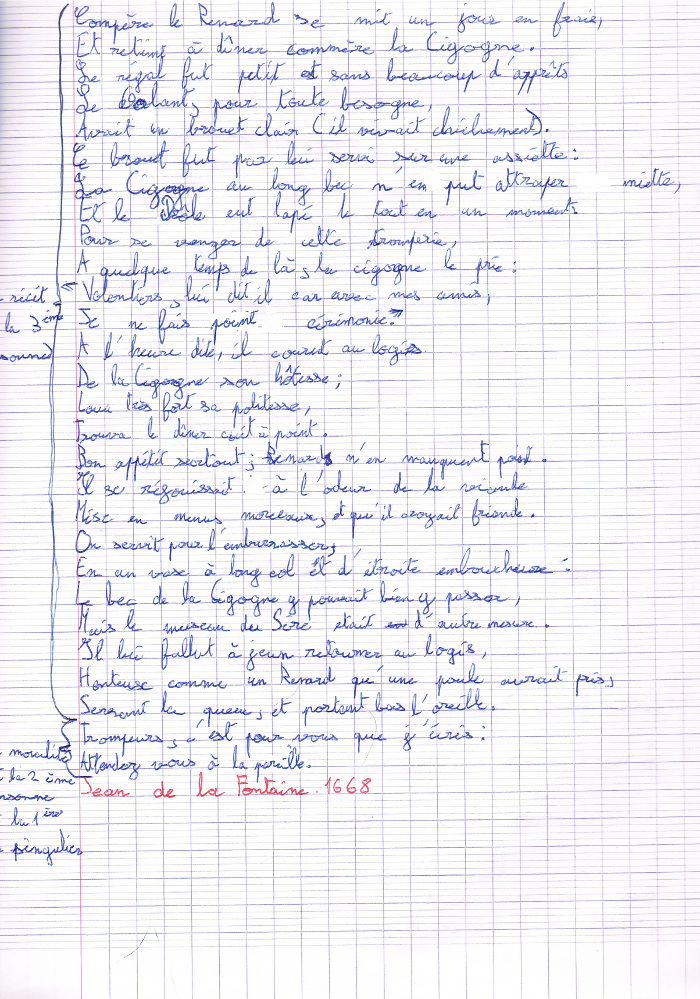 Compère le Renard se mit un jour en frais,
Et retint à dîner commère la Cigogne.
Le régal fut petit et sans beaucoup d'apprêts
Le Galant, pour toute besogne,
Avait un brouet clair (il vivait chichement).
Ce brouet fut par lui servi sur une assiette :
La Cigogne au long bec n'en put attraper miette,
Et le Drôle eut lapé le tout en un moment.
Pour se venger de cette tromperie,
A quelque temps de là, la cigogne le prie :
"Volontiers, lui dit il car avec mes amis,
Je ne fais point cérémonie."
A l'heure dite, il courut au logis
De la Cigogne son hôtesse ;
Loua très fort sa politesse,
Trouva le dîner cuit à point.
Bon appétit surtout ; Renards n'en manquent point.
Il se réjouissait à l'odeur de la viande
Mise en menus morceaux, et qu'il croyait friande.
On servit pour l'embarrasser,
En un vase à long col et d'étroite embouchure :
Le bec de la Cigogne y pouvait bien y passer,
Mais le museau du Sire était d'autre mesure.
Il lui fallut à jeun retourner au logis,
Honteux comme un Renard qu'une poule aurait pris,
Serrant la queue, et portant bas l'oreille.
Trompeurs, c'est pour vous que j'écris :
Attendez vous à la pareille.
Jean de la Fontaine. 1668
récit
la 3ème
sonne
moralité
la 2ème
rsonne
la 1ère
singulier